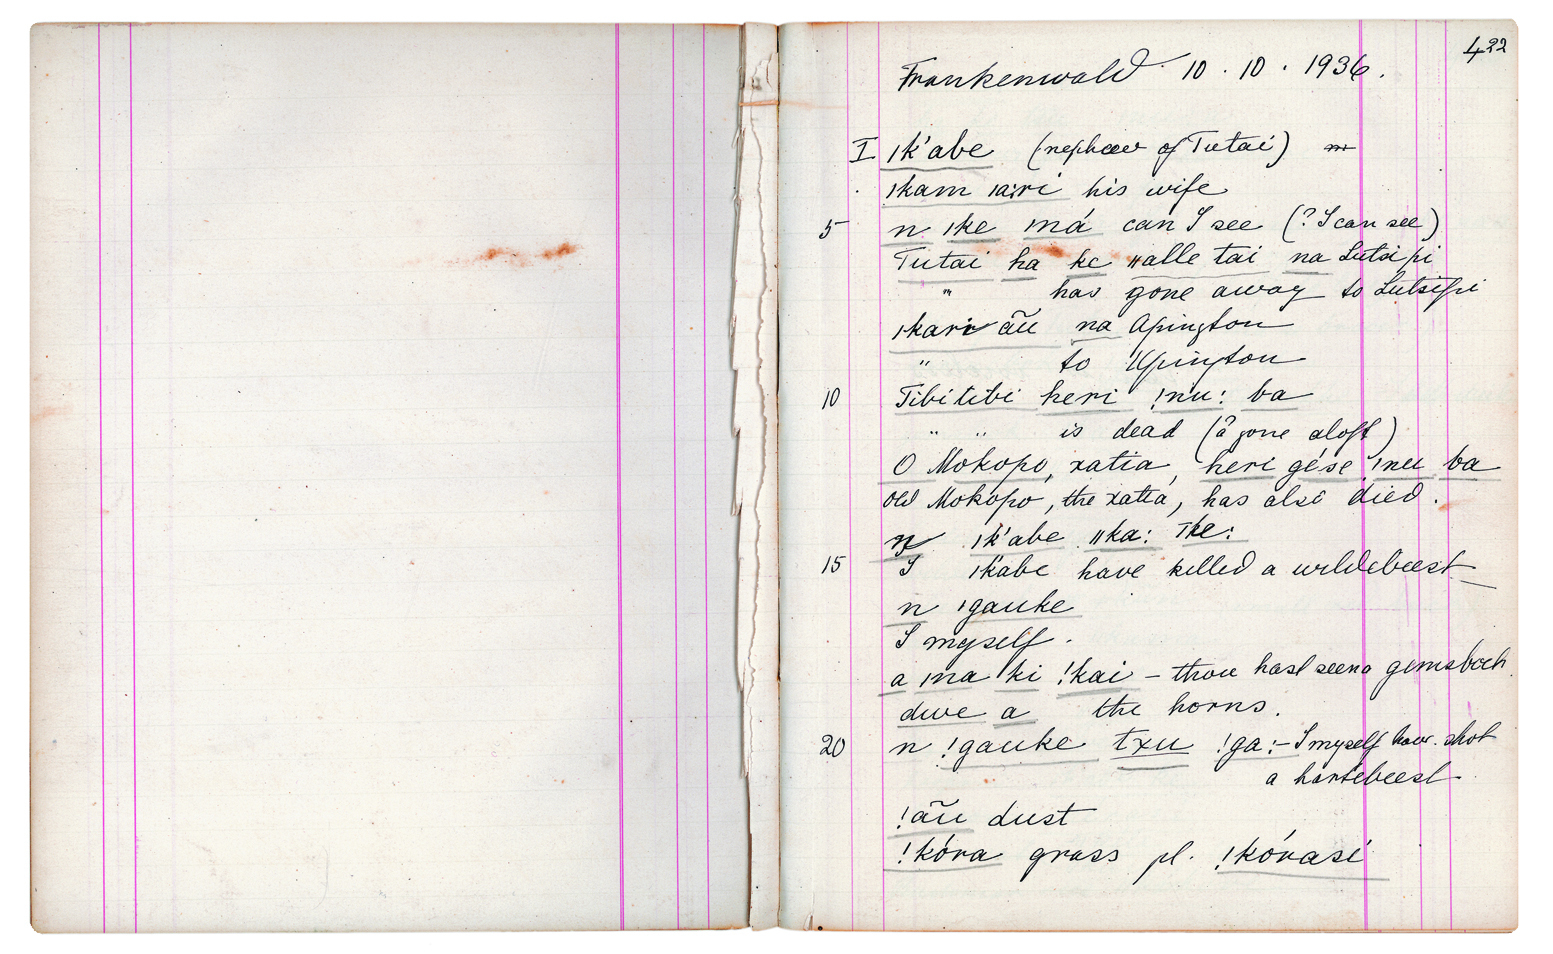 422
Frankenwald 10 . 10 . 1936.
I ǀk'abe (nephew of Tutai) m
ǀkam ǀaːri his wife
5 n ǀke ǀná can I see (? I can see)
Tutai ha ke ǁalle tai na Lutsipi
" has gone away to Lutsipi
ǀkari ãũ na Apington
" to Upington
10 Tibitibi heri !nu: ba
" " is dead (? gone aloft)
O Mokopo, xatia, heri gése !nu ba
old Mokopo, the xatia, has also died.
n ǀk'abe ǁka: ǀke:
15 I ǀk'abe have killed a wildebeest
n ǀgauke
I myself.
a ǀna ki !kai – thou hast seen a gemsbock
dwe a the horns.
20 n !gauke txu !ga: – I myself have shot
a hartebeest
!ãũ dust
!kóra grass pl. !kórasi